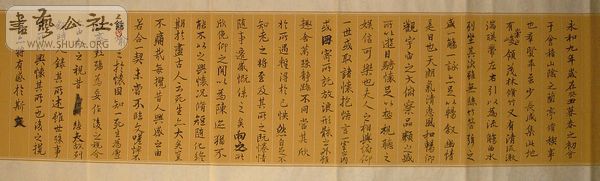 永和九年歲在癸丑暮春之初會
于會稽山陰之蘭亭脩禊事
也群賢畢至少長咸集此地
有崇山峻領茂林脩竹又有清流激
湍暎帶左右引以為流觴曲水
列坐其次雖無絲竹管弦之
盛一觴一詠亦足以暢敘幽情
是日也天朗氣清惠風和暢仰
觀宇宙之大俯察品類之盛
所以遊目騁懷足以極視聽之
娛信可樂也夫人之相與俯仰
一世或取諸懷抱悟言一室之內
或因寄所託放浪形骸之外雖
趣舍萬殊靜躁不同當其欣
於所遇暫得於己怏然自足不
知老之將至及其所之既惓情
隨事遷感慨係之矣向之所
欣俛仰之間以為陳迹猶不
能不以之興懷況脩短隨化終
期於盡古人云死生亦大矣豈
不痛哉每攬昔人興感之由
若合一契未嘗不臨文嗟悼不
於懷固知一死生為虛
殤為妄作後之視今
之視昔悲夫故列
錄其所述雖世殊事
興懷其致一也後之攬
將有感於斯文
書藝公社
WWW.SHUFA.ORG